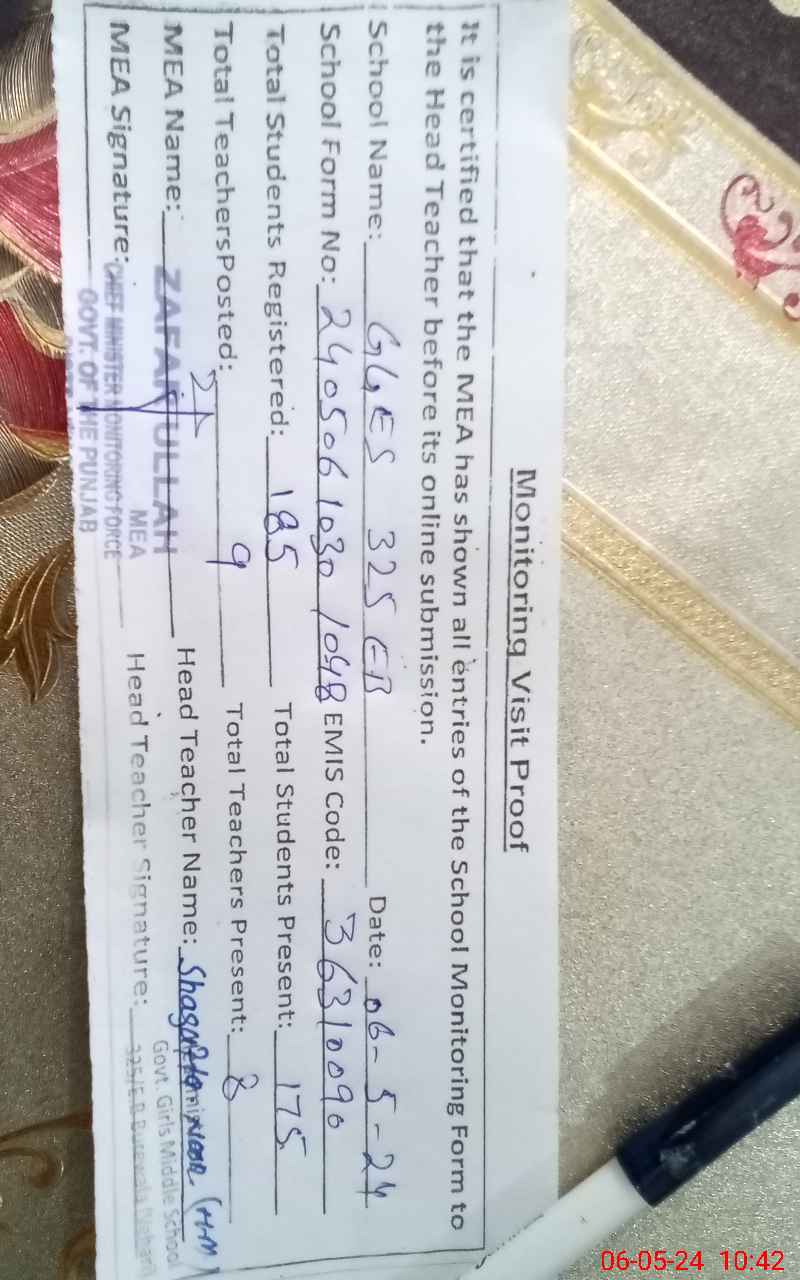 Monitoring Visit Proof
It is certified that the MEA has shown all entries of the School Monitoring Form to
the Head Teacher before its online submission.
School Name: GGES 325 EB Date: 06-5-24
School Form No: 2405061030 1048 EMIS Code: 36310090
Total Students Registered: 185 Total Students Present: 175
Total TeachersPosted: 9 Total Teachers Present: 8
MEA Name: ZAFAR ULLAH Head Teacher Name: (H-M)
MEA Signature: MEA Head Teacher Signature:
CHIEF MINISTER MONITORING FORCE
GOVT. OF THE PUNJAB
Govt. Girls Middle School
325/E.B Burewala Vehari
06-05-24 10:42